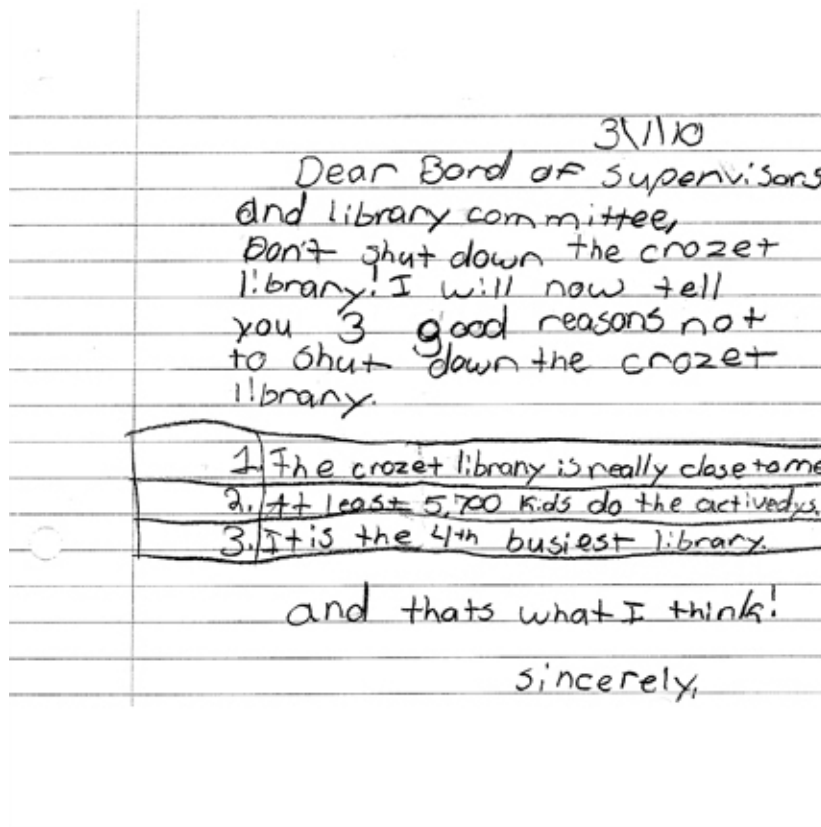 3\1\10
Dear Bord of supervisors
and library committee,
Don't shut down the crozet
library! I will now tell
you 3 good reasons not
to shut down the crozet
library.
1. The crozet library is really close to me
2. At least 5,700 kids do the activedys.
3. It is the 4th busiest library.
and thats what I think!
sincerely,